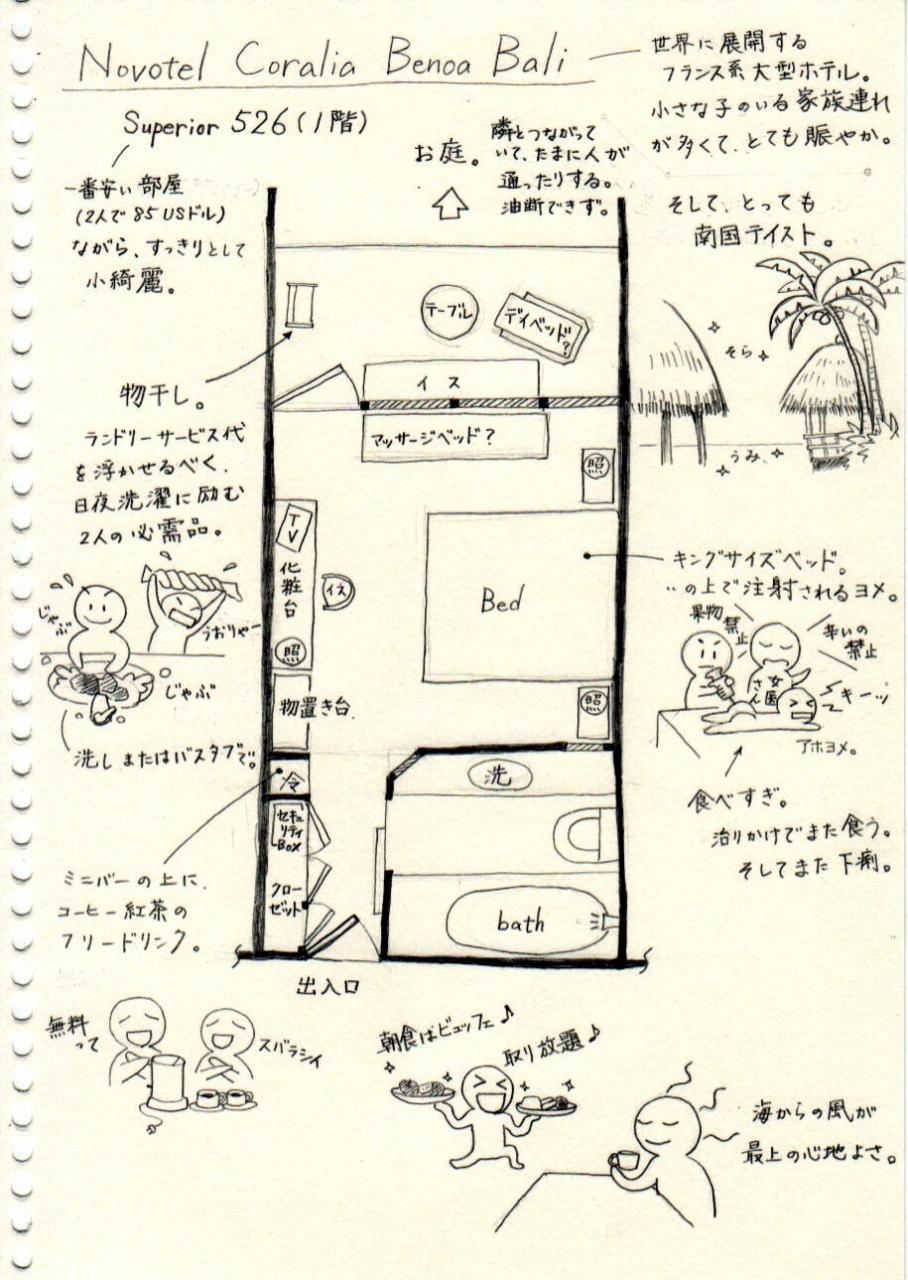 Novotel Coralia Benoa Bali
世界に展開する
フランス系大型ホテル。
小さな子のいる家族連れ
が多くて、とても賑やか。
Superior 526(1階)
一番安い部屋
(2人で85USドル)
ながら、すっきりとして
小綺麗。
お庭。
隣とつながって
いて、たまに人が
通ったりする。
油断できず。
そして、とっても
南国テイスト。
そら
うみ
テーブル
デイベッド?
イス
マッサージベッド?
物干し。
ランドリーサービス代
を浮かせるべく、
日夜洗濯に励む
2人の必需品。
じゃぶ
うおりゃー
じゃぶ
洗しまたはバスタブで。
照
TV
化粧台
イス
照
Bed
キングサイズベッド。
‥の上で注射されるヨメ。
果物禁止
辛いの
禁止
女医さん
キーッ
アホヨメ。
食べすぎ。
治りかけでまた食う。
そしてまた下痢。
物置き台
照
冷
洗
セキュ
リティ
BOX
クロー
ゼット
bath
ミニバーの上に、
コーヒー紅茶の
フリードリンク。
出入口
無料
って
スバラシイ
朝食はビュッフェ♪
取り放題♪
海からの風が
最上の心地よさ。